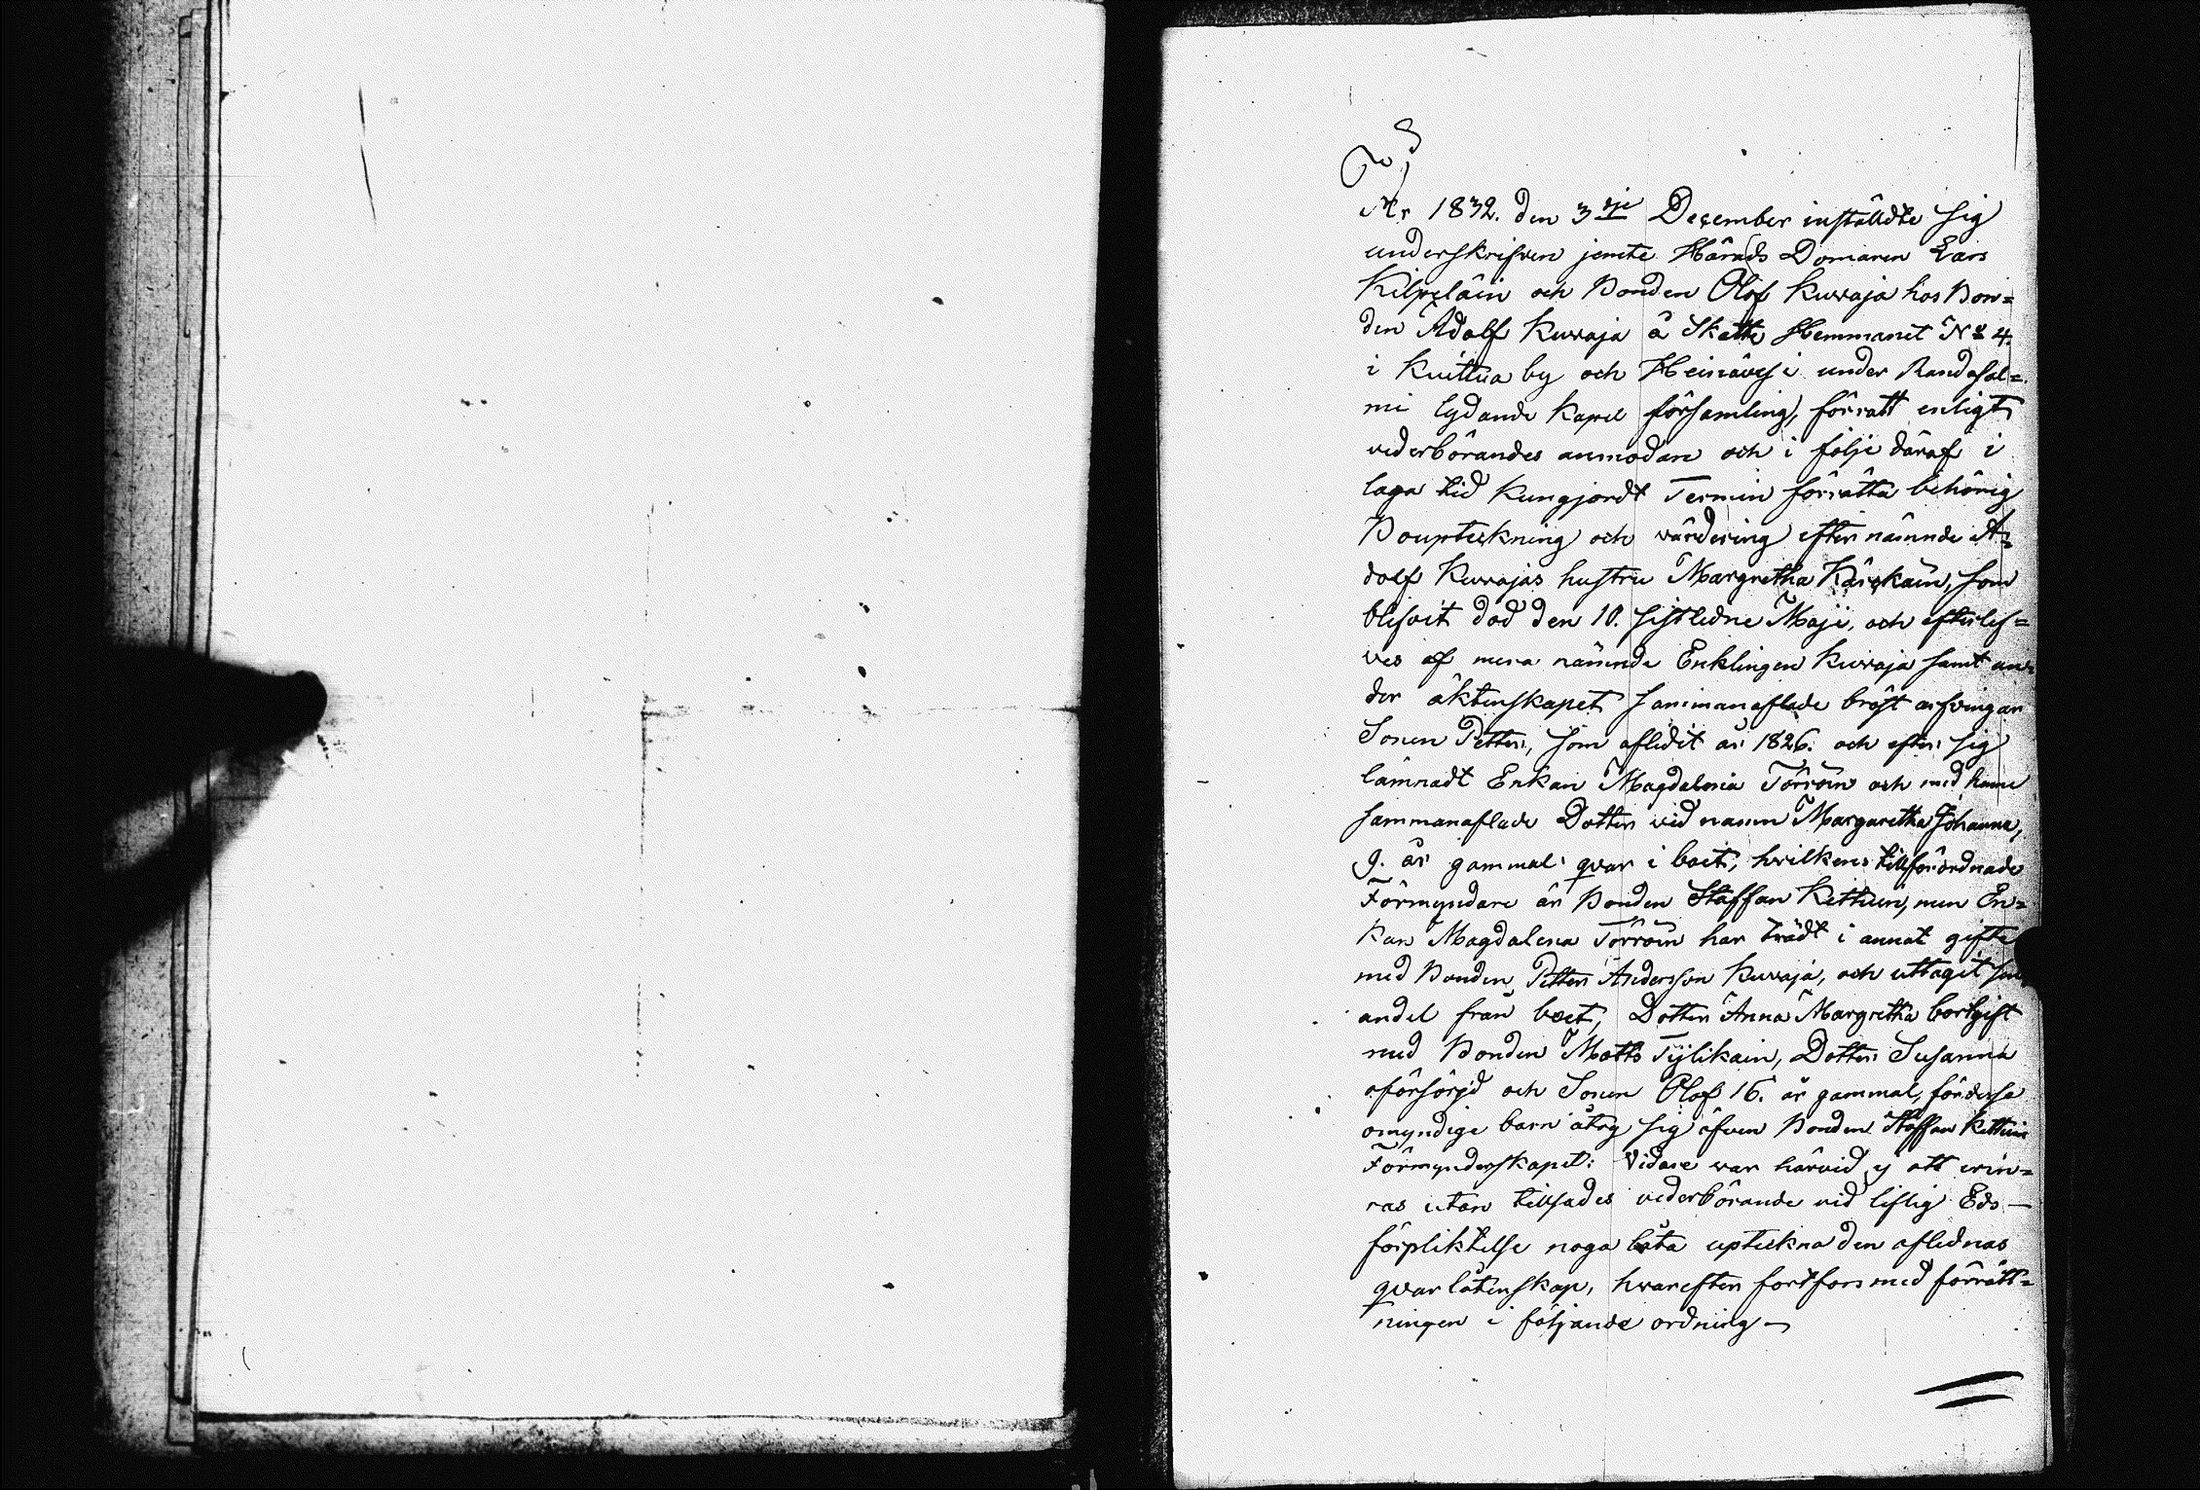 År 1832. den 3dje December inställdte sig
underskrifven jemte Härads Domaren Lars
Kilpeläin och Bonden Olof Kuraja hos Bon=
den Adolf Kuraja å Skatte Hemmanet No 4.
i Kuittua by och Heinävesi under Randasal=
mi lydande Kapel församling, förratt enligt
vederbörandes anmodan och i följe däraf i
laga tid Kungjordt Termin förrätta behörig
Boupteckning och värdering efter nämnde A=
dolf Kurajas hustru Margretha Kärkäin, som
blifvit död den 10. sistledne Maji, och efterlef=
ves af mera nämnde Enklingen Kuraja samt un=
der äktenskapet sammanaflade bröst arfvingar
Sonen Petter, som aflidit år 1826. och efter sig
lämnadt Enkan Magdalena Törröin och med henne
sammanaflade Dotter vid namn Margaretha Johanna,
9. år gammal qvar i boet, hvilkens tillförordnade
Förmyndare är Bonden Staffan Kettuin, men En=
kan Magdalena Törröin har trädt i annat gifte
med Bonden Petter Andersson Kuraja, och uttagit sin
andel från boet, Dotter Anna Margretha bortgift
med Bonden Matts Tylikain, Dotter Susanna
oförsörjd och Sonen Olof 16. år gammal, för desse
omyndige barn åtog sig äfven Bonden Staffan Kettuin
Förmynderskapet: Vidare var härvid ej att erin=
ras utan tillsades vederbörande vid liflig Eds—
förpliktelse noga låta uptekna den aflednas
qvarlåtenskap, hvarefter fortfors med förrätt=
ningen i följande ordning—